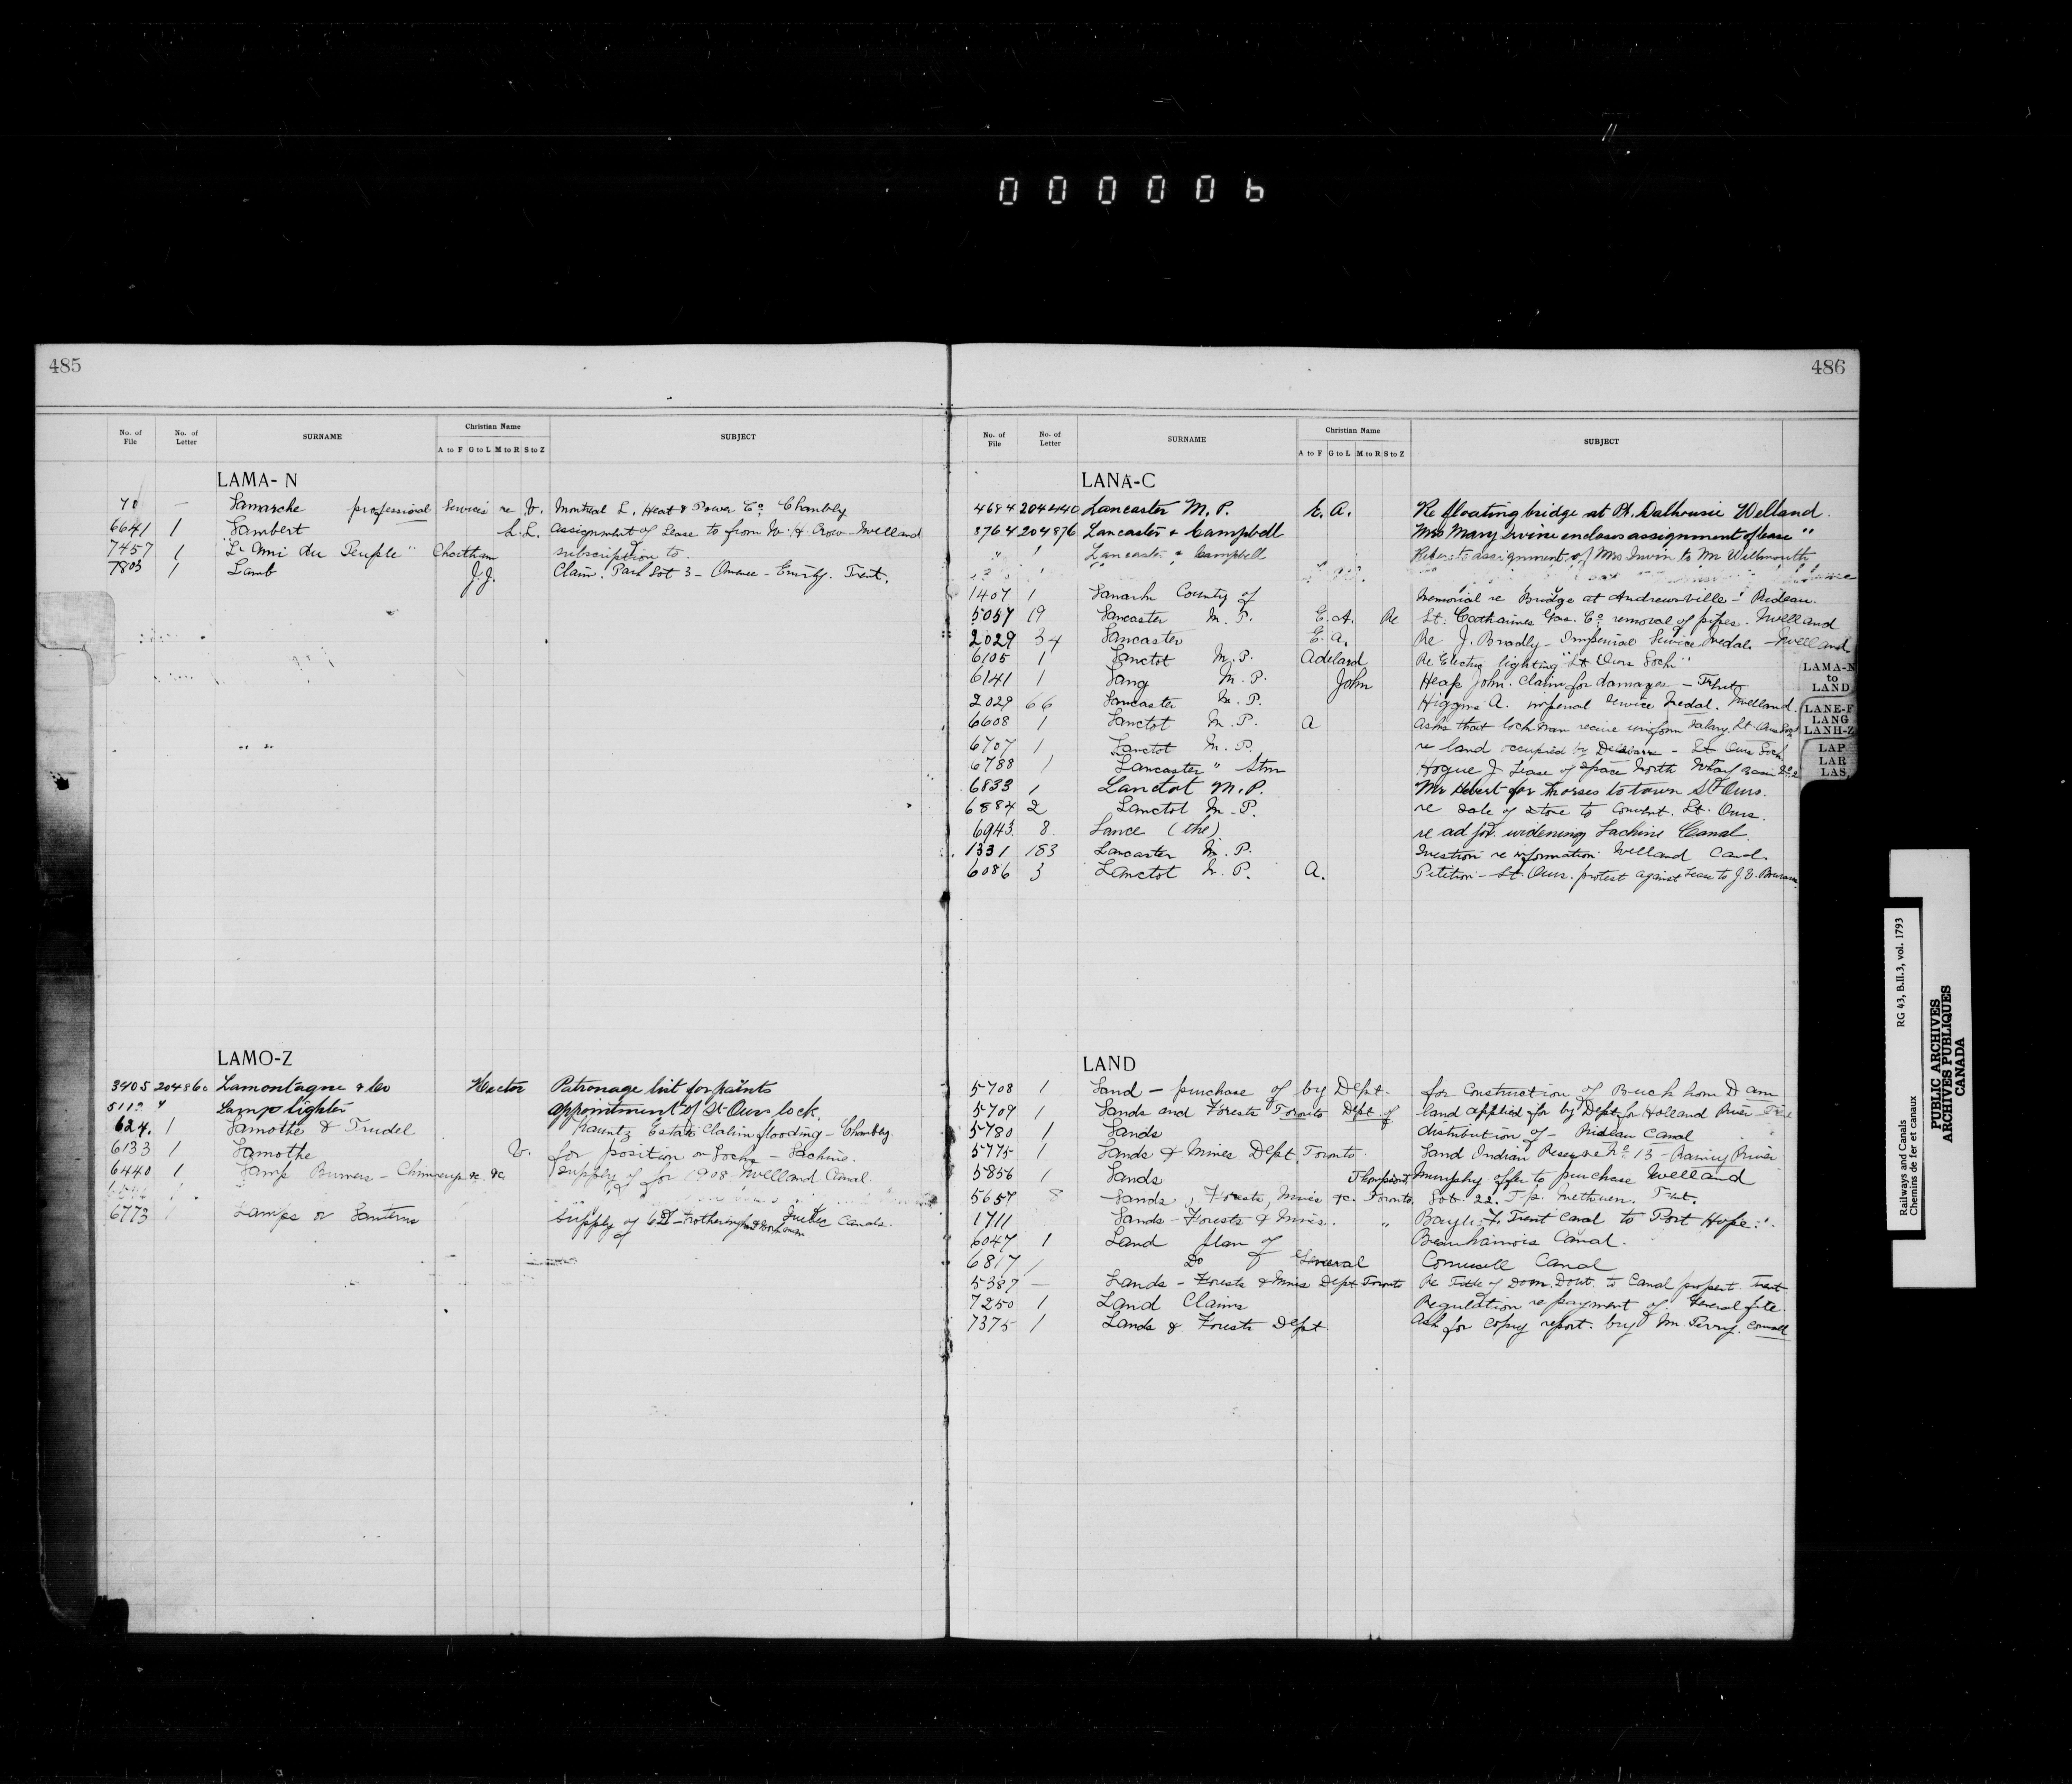 000006
485
No. of File No. of Letter SURNAME Christian Name A to F G to L M to R S to Z SUBJECT
LAMA-N
70 — Lamarche professional services re V. Montreal L. Heat & Power Co. Chambly
6641 1 Lambert L.L. assignment of Lease to from W. H. Crow - Welland
7457 1 "L'Ami du Peuple" Chatham subscription to.
7803 1 Lamb J.J. Claim. Part Lot 3 - Omemee - Emily. Trent.
LAMO-Z
3405 204860 Lamontagne & Co Hector Patronage list for paints
Lamp lighter appointment of St Ours lock.
624. 1 Lamothe & Trudel Estate Claim flooding - Chambly.
6133 1 Lamothe V. for position on Lock - Lachine.
6440 1 Lamp Burners - Chimneys &c. &c. supply of for 1908 Welland Canal
6773 1 Lamps or Lanterns supply of Quebec Canals.
486
No. of File No. of Letter SURNAME Christian Name A to F G to L M to R S to Z SUBJECT
LANA-C
4684 204440 Lancaster M.P. E.A. Re floating bridge at Pt. Dalhousie Welland.
8764 204876 Lancaster & Campbell Mrs Mary Irvine encloses assignment of lease "
" 1 Lancaster & Campbell assignment of Mrs Irvin to Mr Willmouth
1407 1 Lanark County of Memorial re Bridge at Andrewsville - Rideau.
5057 19 Lancaster M.P. E.A. Re St. Catharines Gas. Co. removal of pipes. Welland
2029 34 Lancaster E.A. Re J. Bradly - Imperial Service Medal. - Welland.
6105 1 Lanctot M.P. Adelard Re Electric lighting "St Ours Lock"
6141 1 Lang M.P. John Heap John. Claim for damages - Trent
2029 66 Lancaster M.P. Higgins A. imperial Service Medal. Welland.
6608 1 Lanctot M.P. A Asks that lockman receive uniform salary. St. Ours Lock
6707 1 Lanctot M.P. re land occupied by - St Ours Lock
6788 1 Lancaster " Stm Hogue J Lease of space North Wharf Basin No. 2
6833 1 Lanctot M.P. Mr Hebert for horses to town St Ours.
6884 2 Lanctot M.P. re Sale of stone to Convent. St. Ours.
6943. 8. Lance (the) re ad for. widening Lachine Canal.
1331 183 Lancaster M.P. Question re information Welland Canal.
6086 3 Lanctot M.P. A. Petition - St. Ours. protest against Lease to J.E.
LAND
5708 1 Land - purchase of by Dept. for Construction of Buckhorn Dam
5709 1 Lands and Forests Toronto Dept. of land applied for by Dept. for Holland River - Trent
5780 1 Lands distribution of - Rideau Canal
5775 1 Lands & Mines Dept. Toronto Land Indian Reserve No. 13 - Rainy River
5856 1 Lands Thompson, Murphy offer to purchase Welland
5657 8 Lands, Forests, Mines &c. Toronto, Lot 22. Tp. Methuen. Trent.
1711 Lands - Forests & Mines. " Trent Canal to Port Hope.
6047 1 Land plan of Beauharnois Canal.
6817 1 Do of General Cornwall Canal
5387 — Lands - Forests & Mines Dept. Toronto Re Title of Dom. Govt. to Canal propert Trent
7250 1 Land Claims Regulation re payment of General file
7375 1 Lands & Forests Dept. Ask for copy report. by Mr. Terry. Cornwall
LAMA-N
to
LAND
LANE-F
LANG
LANH-Z
LAP
LAR
LAS
Railways and Canals RG 43, B.II.3, vol. 1793
Chemins de fer et canaux
PUBLIC ARCHIVES
ARCHIVES PUBLIQUES
CANADA